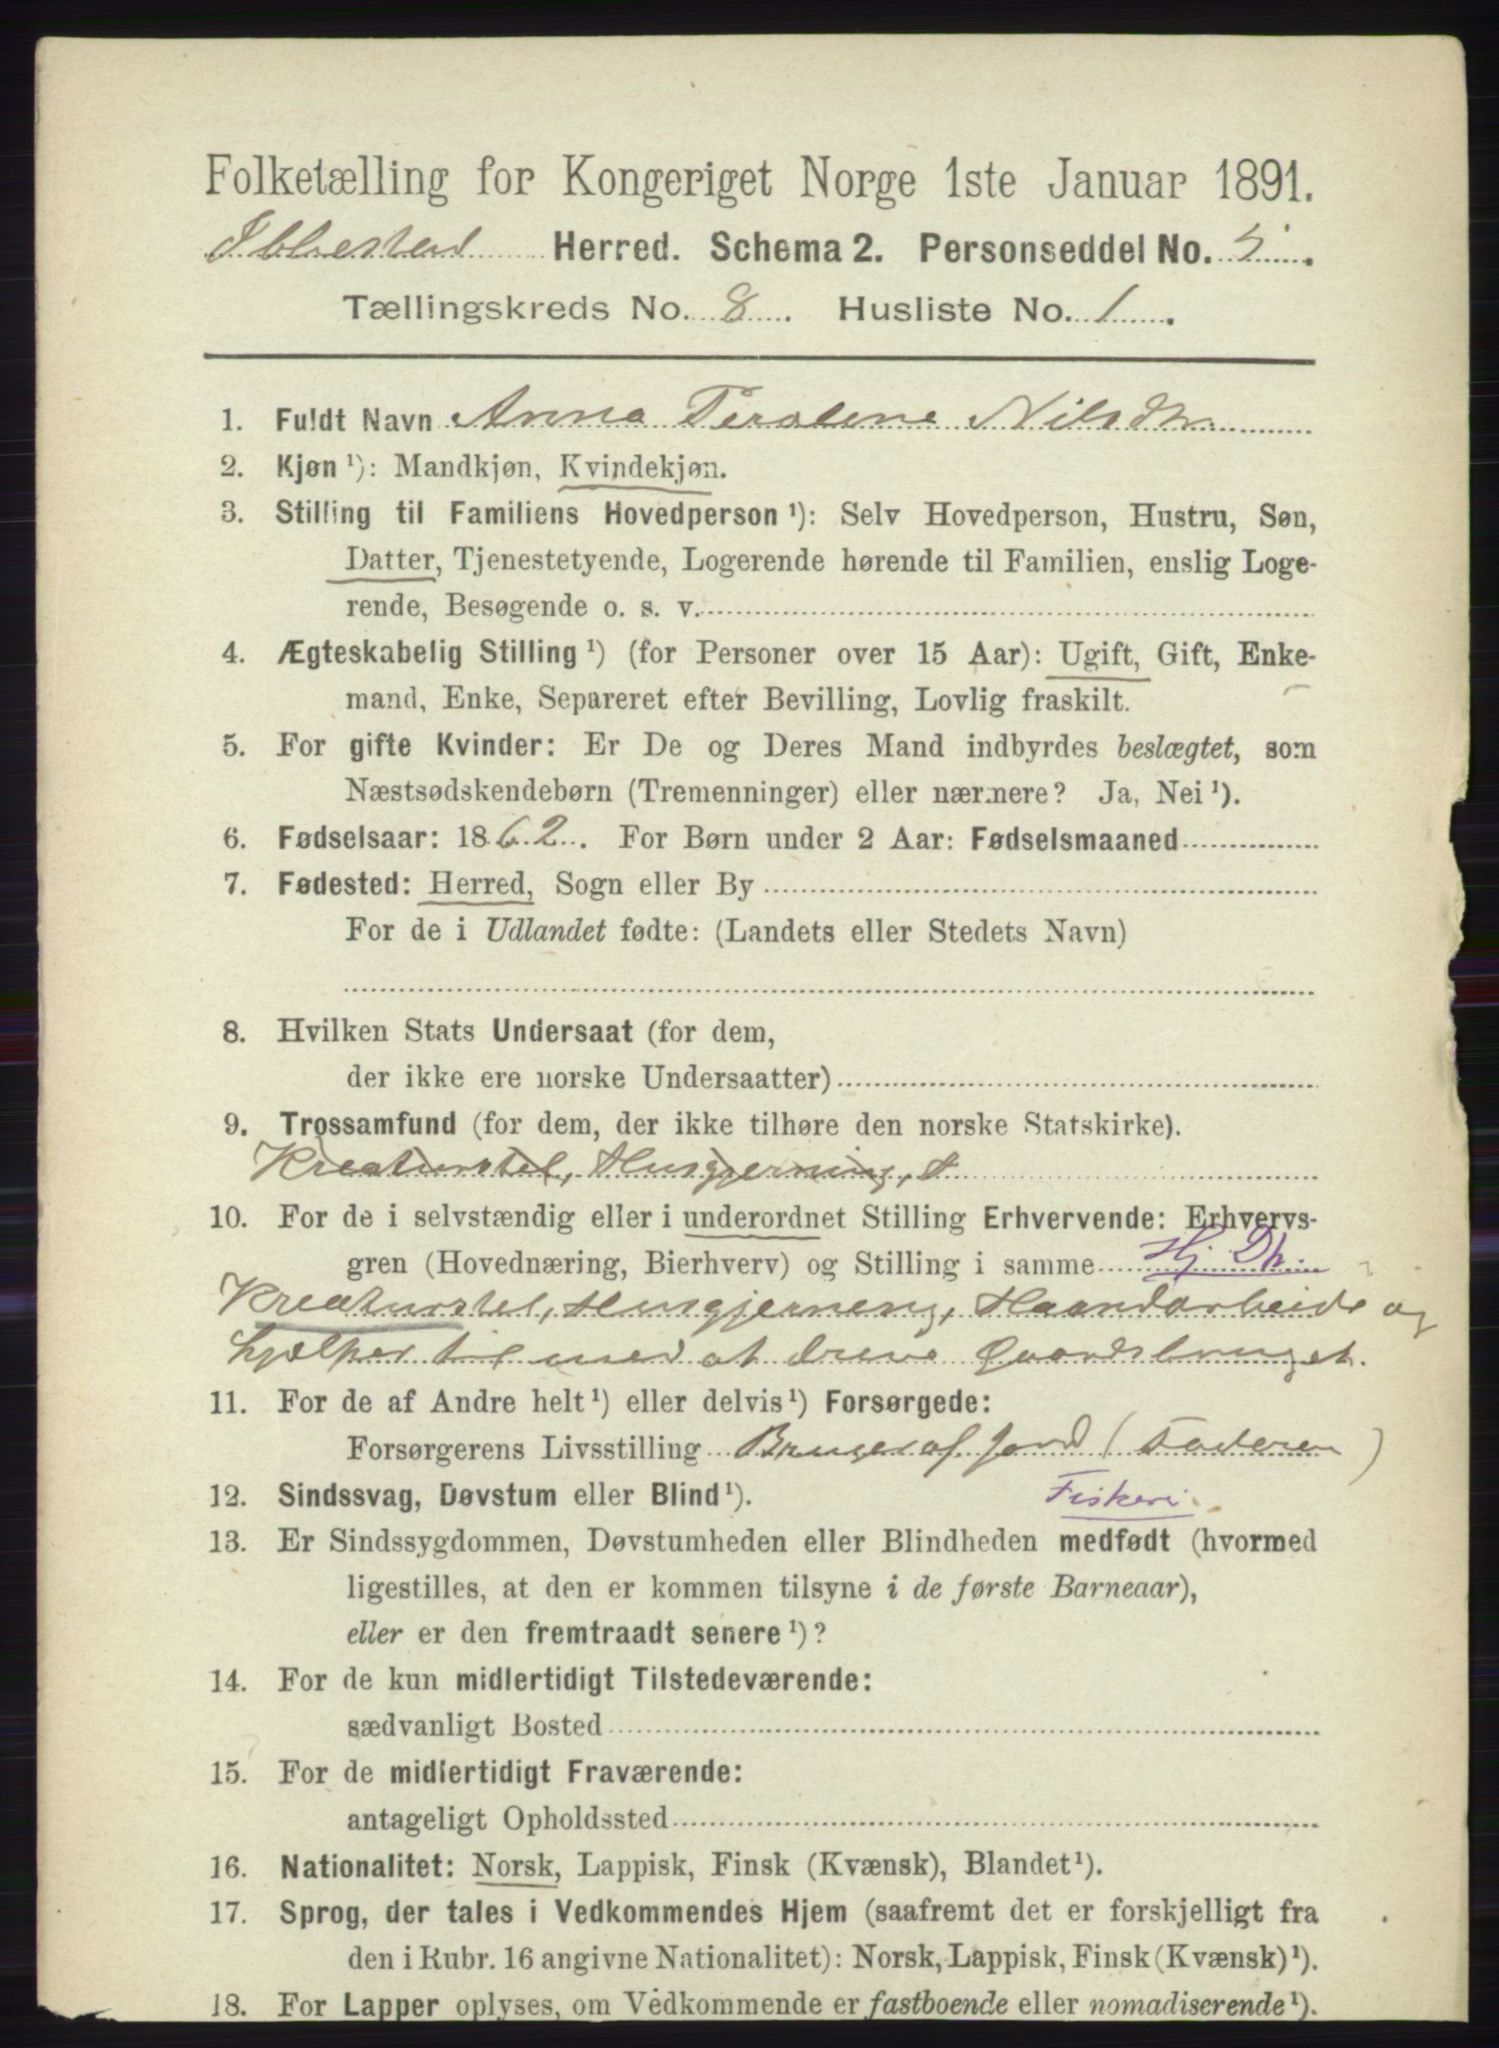 Folketælling for Kongeriget Norge 1ste Januar 1891.
Ibbestad Herred. Schema 2. Personseddel No. 5.
Tællingskreds No. 8. Husliste No. 1.
1. Fuldt Navn Anna Nilsdtr.
2. Kjøn ¹): Mandkjøn, Kvindekjøn.
3. Stilling til Familiens Hovedperson ¹): Selv Hovedperson, Hustru, Søn,
Datter, Tjenestetyende, Logerende hørende til Familien, enslig Loge-
rende, Besøgende o. s. v.
4. Ægteskabelig Stilling ¹) (for Personer over 15 Aar): Ugift, Gift, Enke-
mand, Enke, Separeret efter Bevilling, Lovlig fraskilt.
5. For gifte Kvinder: Er De og Deres Mand indbyrdes beslægtet, som
Næstsødskendebørn (Tremenninger) eller nærmere? Ja, Nei ¹).
6. Fødselsaar: 1862. For Børn under 2 Aar: Fødselsmaaned
7. Fødested: Herred, Sogn eller By
For de i Udlandet fødte: (Landets eller Stedets Navn)
8. Hvilken Stats Undersaat (for dem,
der ikke ere norske Undersaatter)
9. Trossamfund (for dem, der ikke tilhøre den norske Statskirke).
Kreaturstel, Husgjerning,
10. For de i selvstændig eller i underordnet Stilling Erhvervende: Erhvervs-
gren (Hovednæring, Bierhverv) og Stilling i samme Hj. Dtr.
Kreaturstel, Husgjerning, Haandarbeide og
hjælper til med at dreve Gaardsbruget.
11. For de af Andre helt ¹) eller delvis ¹) Forsørgede:
Forsørgerens Livsstilling Bruger af Jord (Faderen)
12. Sindssvag, Døvstum eller Blind ¹). Fiskeri
13. Er Sindssygdommen, Døvstumheden eller Blindheden medfødt (hvormed
ligestilles, at den er kommen tilsyne i de første Barneaar),
eller er den fremtraadt senere ¹)?
14. For de kun midlertidigt Tilstedeværende:
sædvanligt Bosted
15. For de midlertidigt Fraværende:
antageligt Opholdssted
16. Nationalitet: Norsk, Lappisk, Finsk (Kvænsk), Blandet ¹).
17. Sprog, der tales i Vedkommendes Hjem (saafremt det er forskjelligt fra
den i Rubr. 16 angivne Nationalitet): Norsk, Lappisk, Finsk (Kvænsk) ¹).
18. For Lapper oplyses, om Vedkommende er fastboende eller nomadiserende ¹).